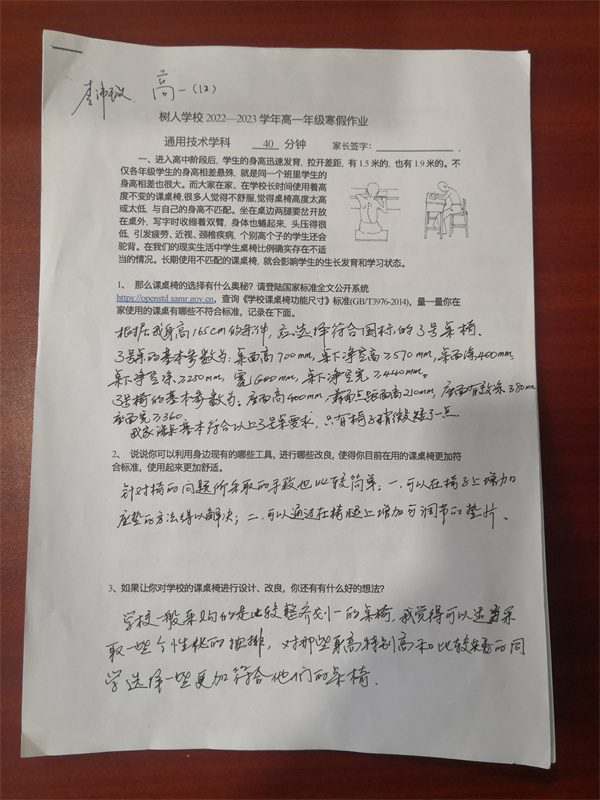 李沛 高一(12)
树人学校 2022—2023 学年高一年级寒假作业
通用技术学科 40 分钟 家长签字：
一、进入高中阶段后，学生的身高迅速发育，拉开差距，有 1.5 米的，也有 1.9 米的。不
仅各年级学生的身高相差悬殊，就是同一个班里学生的
身高相差也很大。而大家在家、在学校长时间使用着高
度不变的课桌椅，很多人觉得不舒服，觉得桌椅高度太高
或太低，与自己的身高不匹配。坐在桌边两腿要岔开放
在桌外，写字时收缩着双臂，身体也蜷起来，头压得很
低，引发疲劳、近视、颈椎疾病，个别高个子的学生还会
驼背。在我们的现实生活中学生桌椅比例确实存在不适
当的情况。长期使用不匹配的课桌椅，就会影响学生的生长发育和学习状态。
1、 那么课桌椅的选择有什么奥秘？请登陆国家标准全文公开系统
https://openstd.samr.gov.cn，查询《学校课桌椅功能尺寸》标准(GB/T3976-2014)，量一量你在
家使用的课桌有哪些不符合标准，记录在下面。
根据我身高165cm的条件，应选择符合国标的3号桌椅.
3号桌的基本参数为：桌面高700mm，桌下净空高≥570mm，桌面深400mm
桌下净空深≥250mm，宽1600mm，桌下净空宽≥440mm。
3号椅的基本参数为：座面高400mm，靠背点距面高210mm，座面有效深380mm
座面宽≥360.
我家课桌基本符合以上3号桌要求，只有椅子稍微矮了一点
2、 说说你可以利用身边现有的哪些工具，进行哪些改良，使得你目前在用的课桌椅更加符
合标准，使用起来更加舒适。
针对椅的问题所采取的手段也比较简单：一.可以在椅子上增加
座垫的方法得以解决；二.可以通过在椅腿上增加可调节的垫片。
3、如果让你对学校的课桌椅进行设计、改良，你还有有什么好的想法？
学校一般采购的是比较整齐划一的桌椅，我觉得可以适当采
取一些个性化的安排，对那些身高特别高和比较矮的同
学选择一些更加符合他们的桌椅.